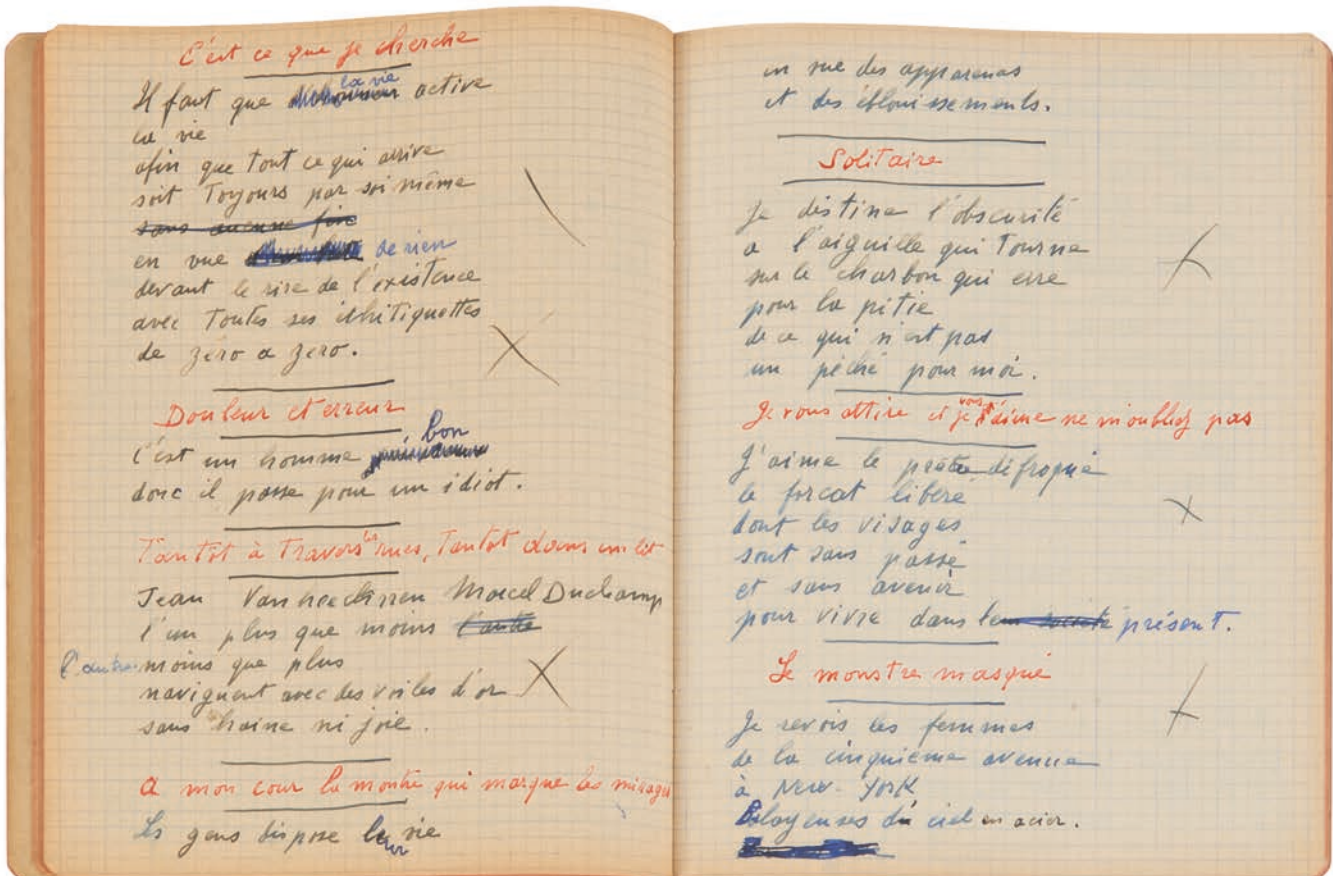 C'est ce que je cherche
Il faut que la vie active
la vie
afin que tout ce qui arrive
soit Toyours par soi même
sans aucune fin
en vue de rien
devant le rire de l'existence
avec Toutes ses
de zéro a zero.
Douleur et erreur
C'est un homme bon
donc il passe pour un idiot.
Tantôt à Travers les rues, Tantot dans un lit
Jean Van Marcel Duchamp
l'un plus que moins l'autre
l'autre moins que plus
naviguent avec des voiles d'or
sans haine ni joie.
a mon cour la montre qui marque les mirages
Les gens dispose leur vie
en vue des apparenas
et des éblouissements.
Solitaire
Je destine l'obscurité
a l'aiguille qui Tourne
sur le charbon qui erre
pour la pitie
de ce qui n'est pas
un péché pour moi.
Je vous attire et je vous aime ne m'oubliez pas
J'aime le prêtre défroqué
le forcat libere
dont les visages
sont sans passé
et sans avenir
pour vivre dans le présent.
Le monstre masqué
Je revois les femmes
de la cinquieme avenue
à New-York
du ciel en acier.